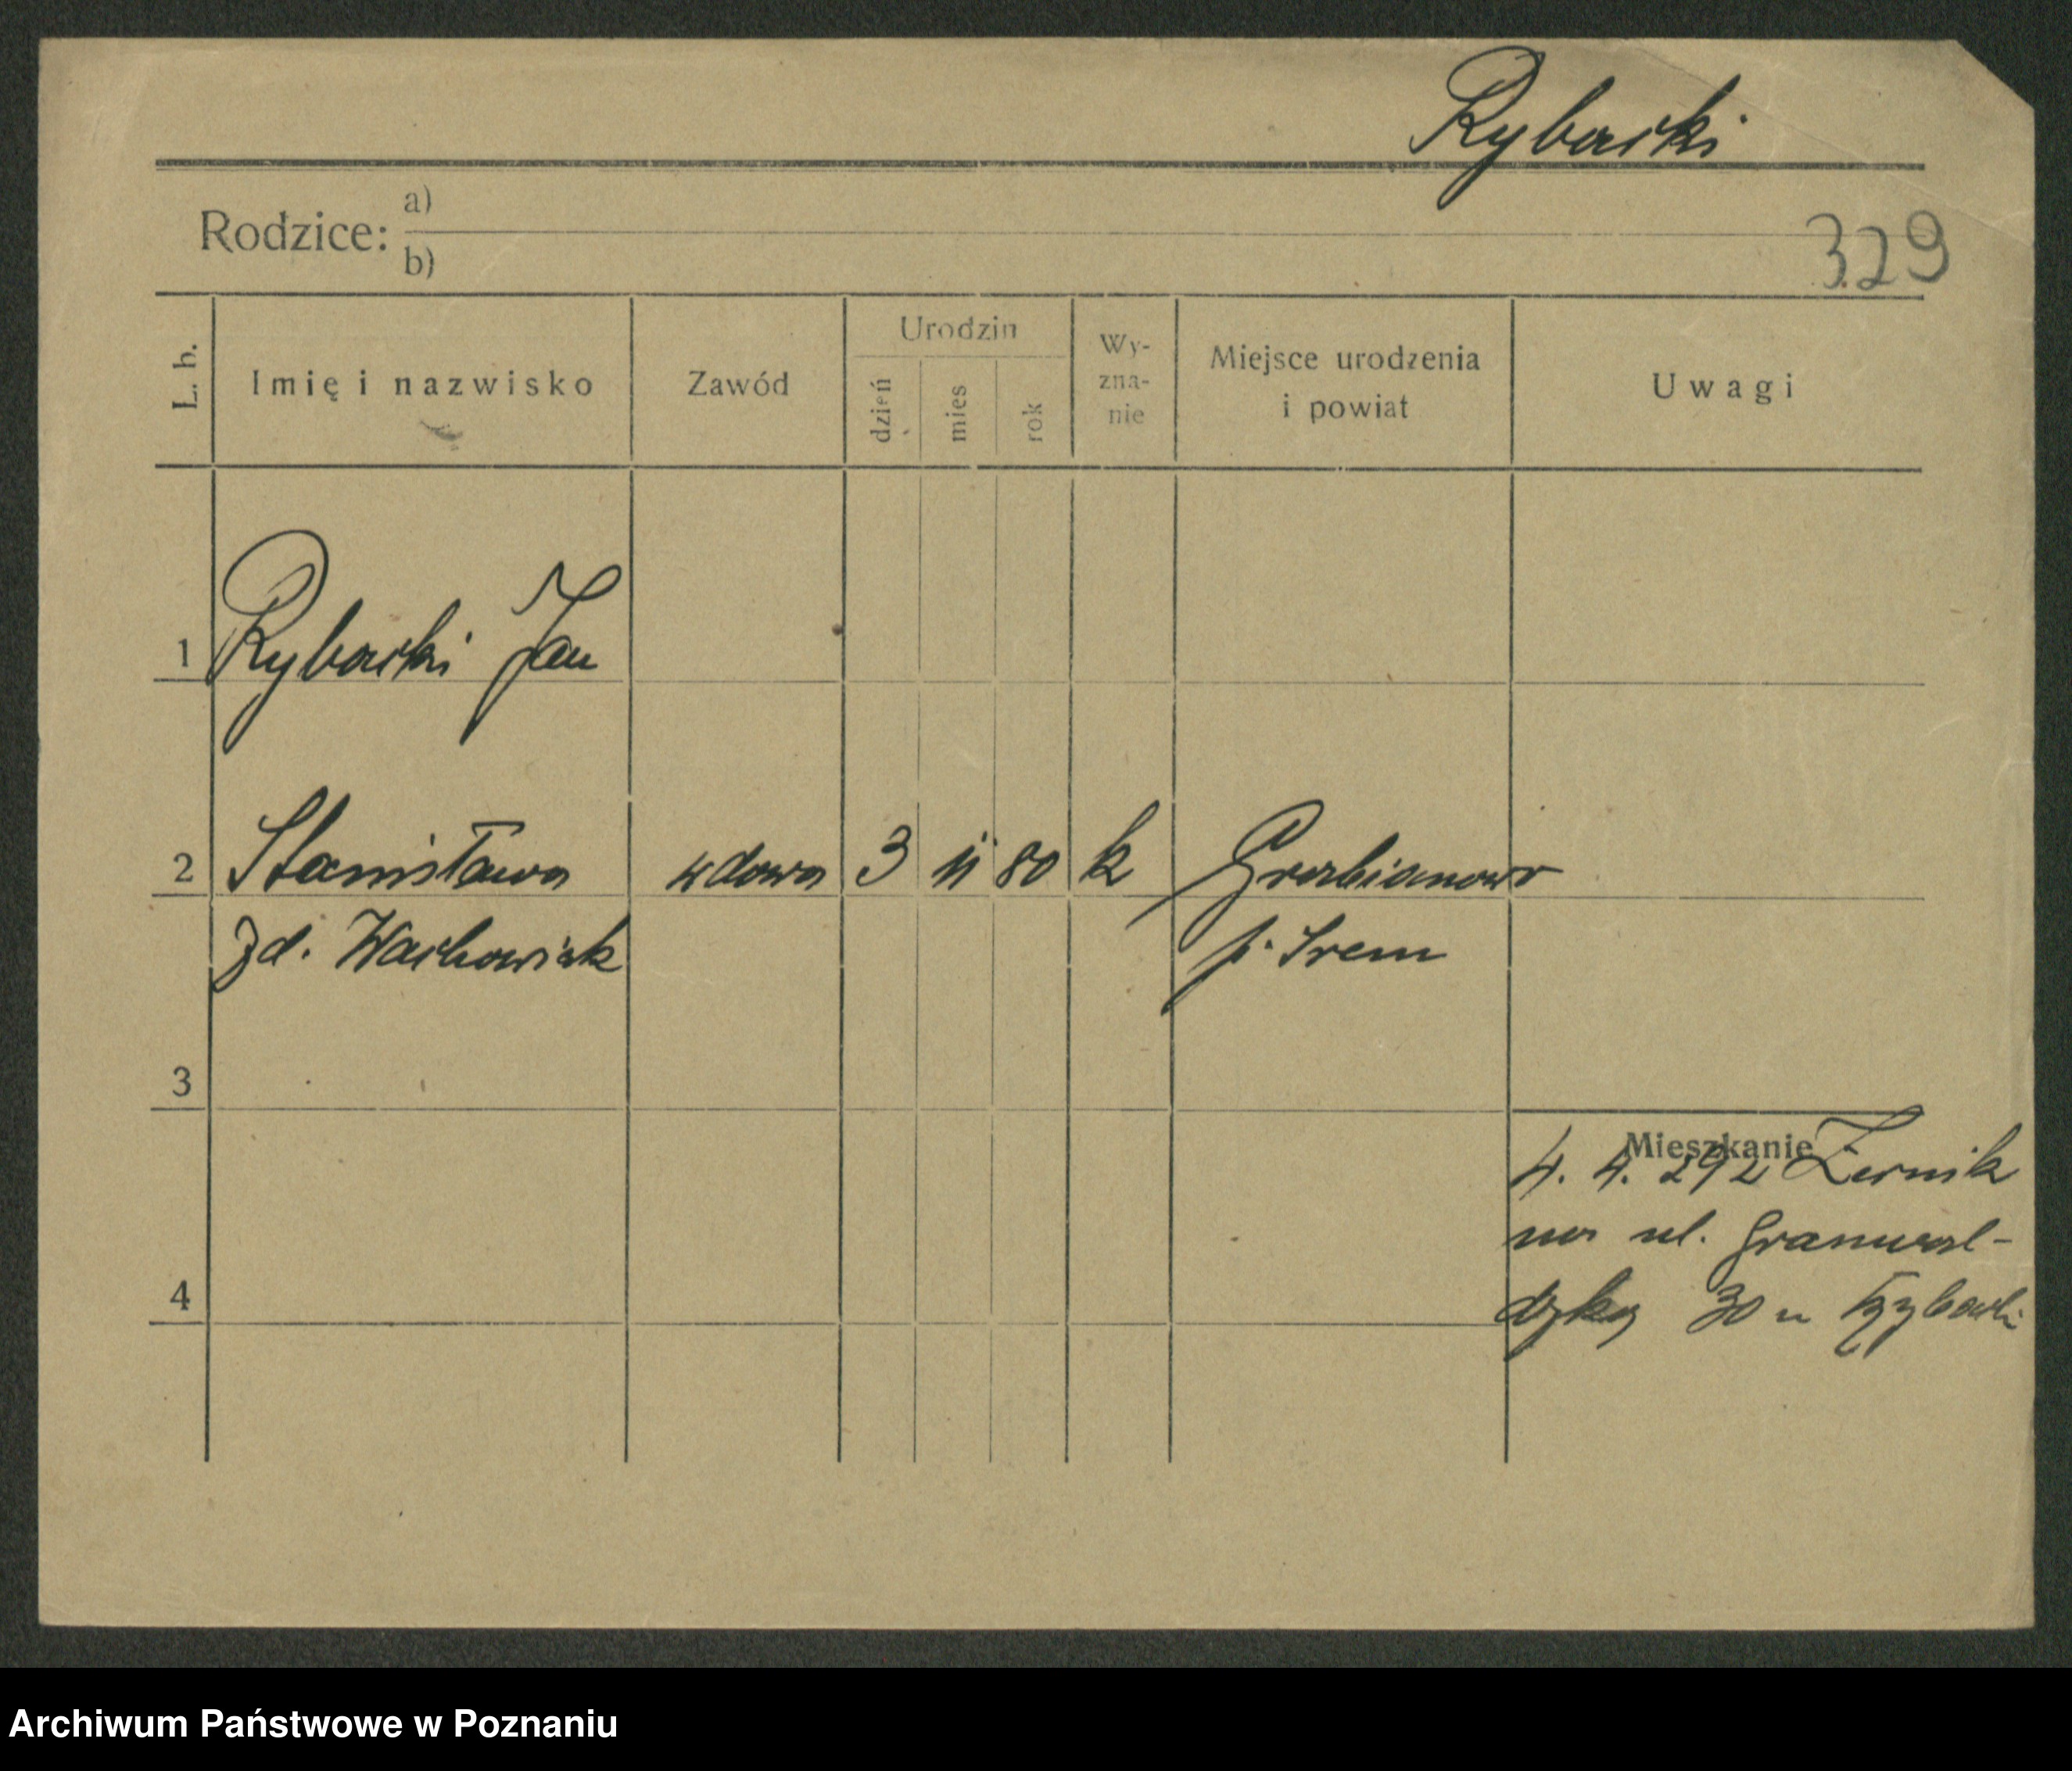 Rybacki
Rodzice: a)
b)
329
L. b.
Imię i nazwisko
Zawód
Urodzin
dzień
mies
rok
Wy-
zna-
nie
Miejsce urodzenia
i powiat
Uwagi
1 Rybacki Jan
2 Stanisława wdowa 3 11 80 k Grabianowo
zd. Wachowiak p. Śrem
3
Mieszkanie
4. 4. 292 Żernik
na ul. Grunwal-
dzką 30 u Rybacki
4
Archiwum Państwowe w Poznaniu